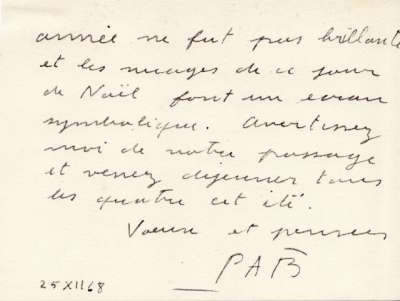 année ne fut pas brillante
et les nuages de ce jour
de Noël font un écran
symbolique. Avertissez
moi de votre passage
et venez déjeuner tous
les quatre cet été.
Voeux et pensées
PAB
25 XII 68